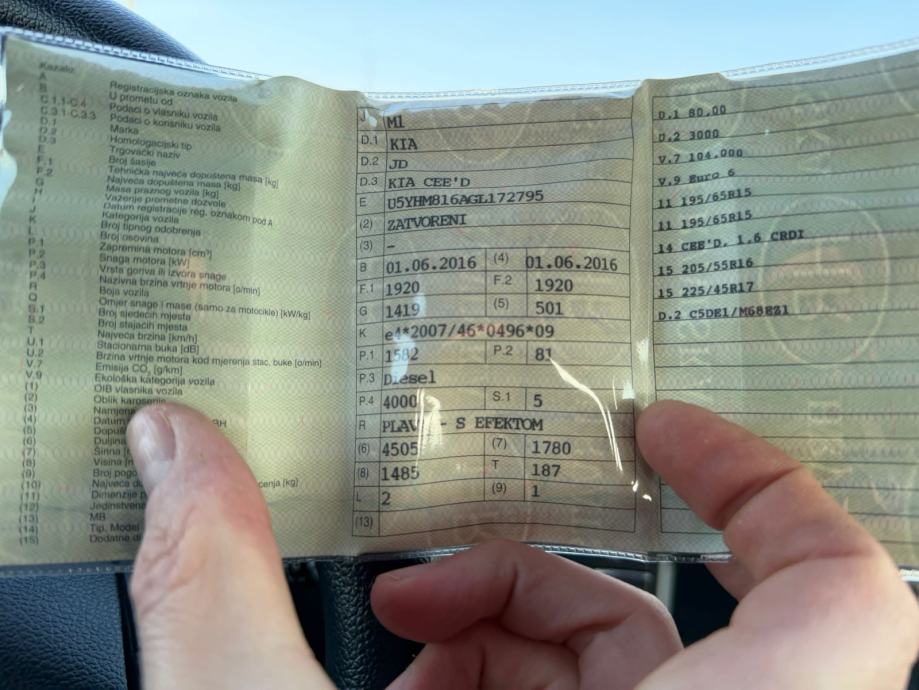 Kazalo:
A Registracijska oznaka vozila
B U prometu od
C.1.1-C.4 Podaci o vlasniku vozila
C.3.1-C.3.3 Podaci o korisniku vozila
D.1 Marka
D.2 Homologacijski tip
D.3 Trgovački naziv
E Broj šasije
F.1 Tehnička najveća dopuštena masa [kg]
F.2 Najveća dopuštena masa [kg]
G Masa praznog vozila [kg]
H Važenje prometne dozvole
I Datum registracije reg. oznakom pod A
J Kategorija vozila
K Broj tipnog odobrenja
L Broj osovina
P.1 Zapremina motora [cm³]
P.2 Snaga motora [kW]
P.3 Vrsta goriva ili izvora snage
P.4 Nazivna brzina vrtnje motora [o/min]
R Boja vozila
Q Omjer snage i mase (samo za motocikle) [kW/kg]
S.1 Broj sjedećih mjesta
S.2 Broj stajaćih mjesta
T Najveća brzina [km/h]
U.1 Stacionarna buka [dB]
U.2 Brzina vrtnje motora kod mjerenja stac. buke [o/min]
V.7 Emisija CO₂ [g/km]
V.9 Ekološka kategorija vozila
(1) OIB vlasnika vozila
(2) Oblik karoserije
(3)
(4) Datum
(5)
(6) Duljina
(7) Širina
(8) Visina
(9) Broj
(10) [kg]
(11) Dimenzije
(12)
(13) MB
(14) Tip, Model
(15)
J M1
D.1 KIA
D.2 JD
D.3 KIA CEE'D
E U5YHM816AGL172795
(2) ZATVORENI
(3) –
B 01.06.2016 (4) 01.06.2016
F.1 1920 F.2 1920
G 1419 (5) 501
K e4*2007/46*0496*09
P.1 1582 P.2 81
P.3 Diesel
P.4 4000 S.1 5
R - S EFEKTOM
(6) 4505 (7) 1780
(8) 1485 T 187
L 2 (9) 1
(13)
D.1 80.00
U.2 3000
V.7 104.000
V.9 Euro 6
11 195/65R15
11 195/65R15
14 CEE'D, 1.6 CRDI
15 205/55R16
15 225/45R17
D.2 C5DE1/M68EZ1